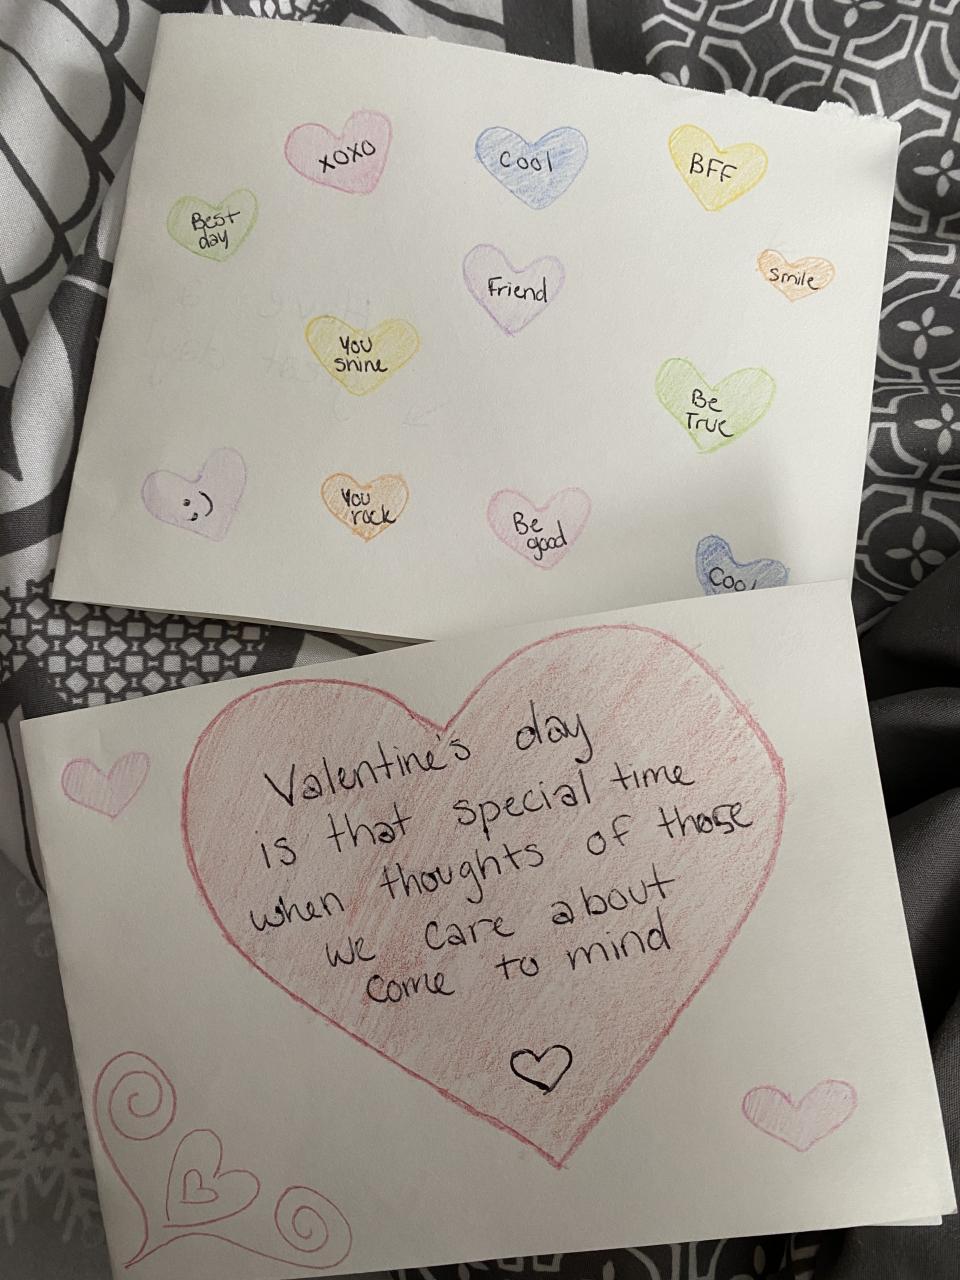 xoxo
Cool
BFF
Best
day
Friend
Smile
You
shine
Be
True
You
rock
Be
good
Cool
Valentine's day
is that special time
when thoughts of those
we care about
come to mind